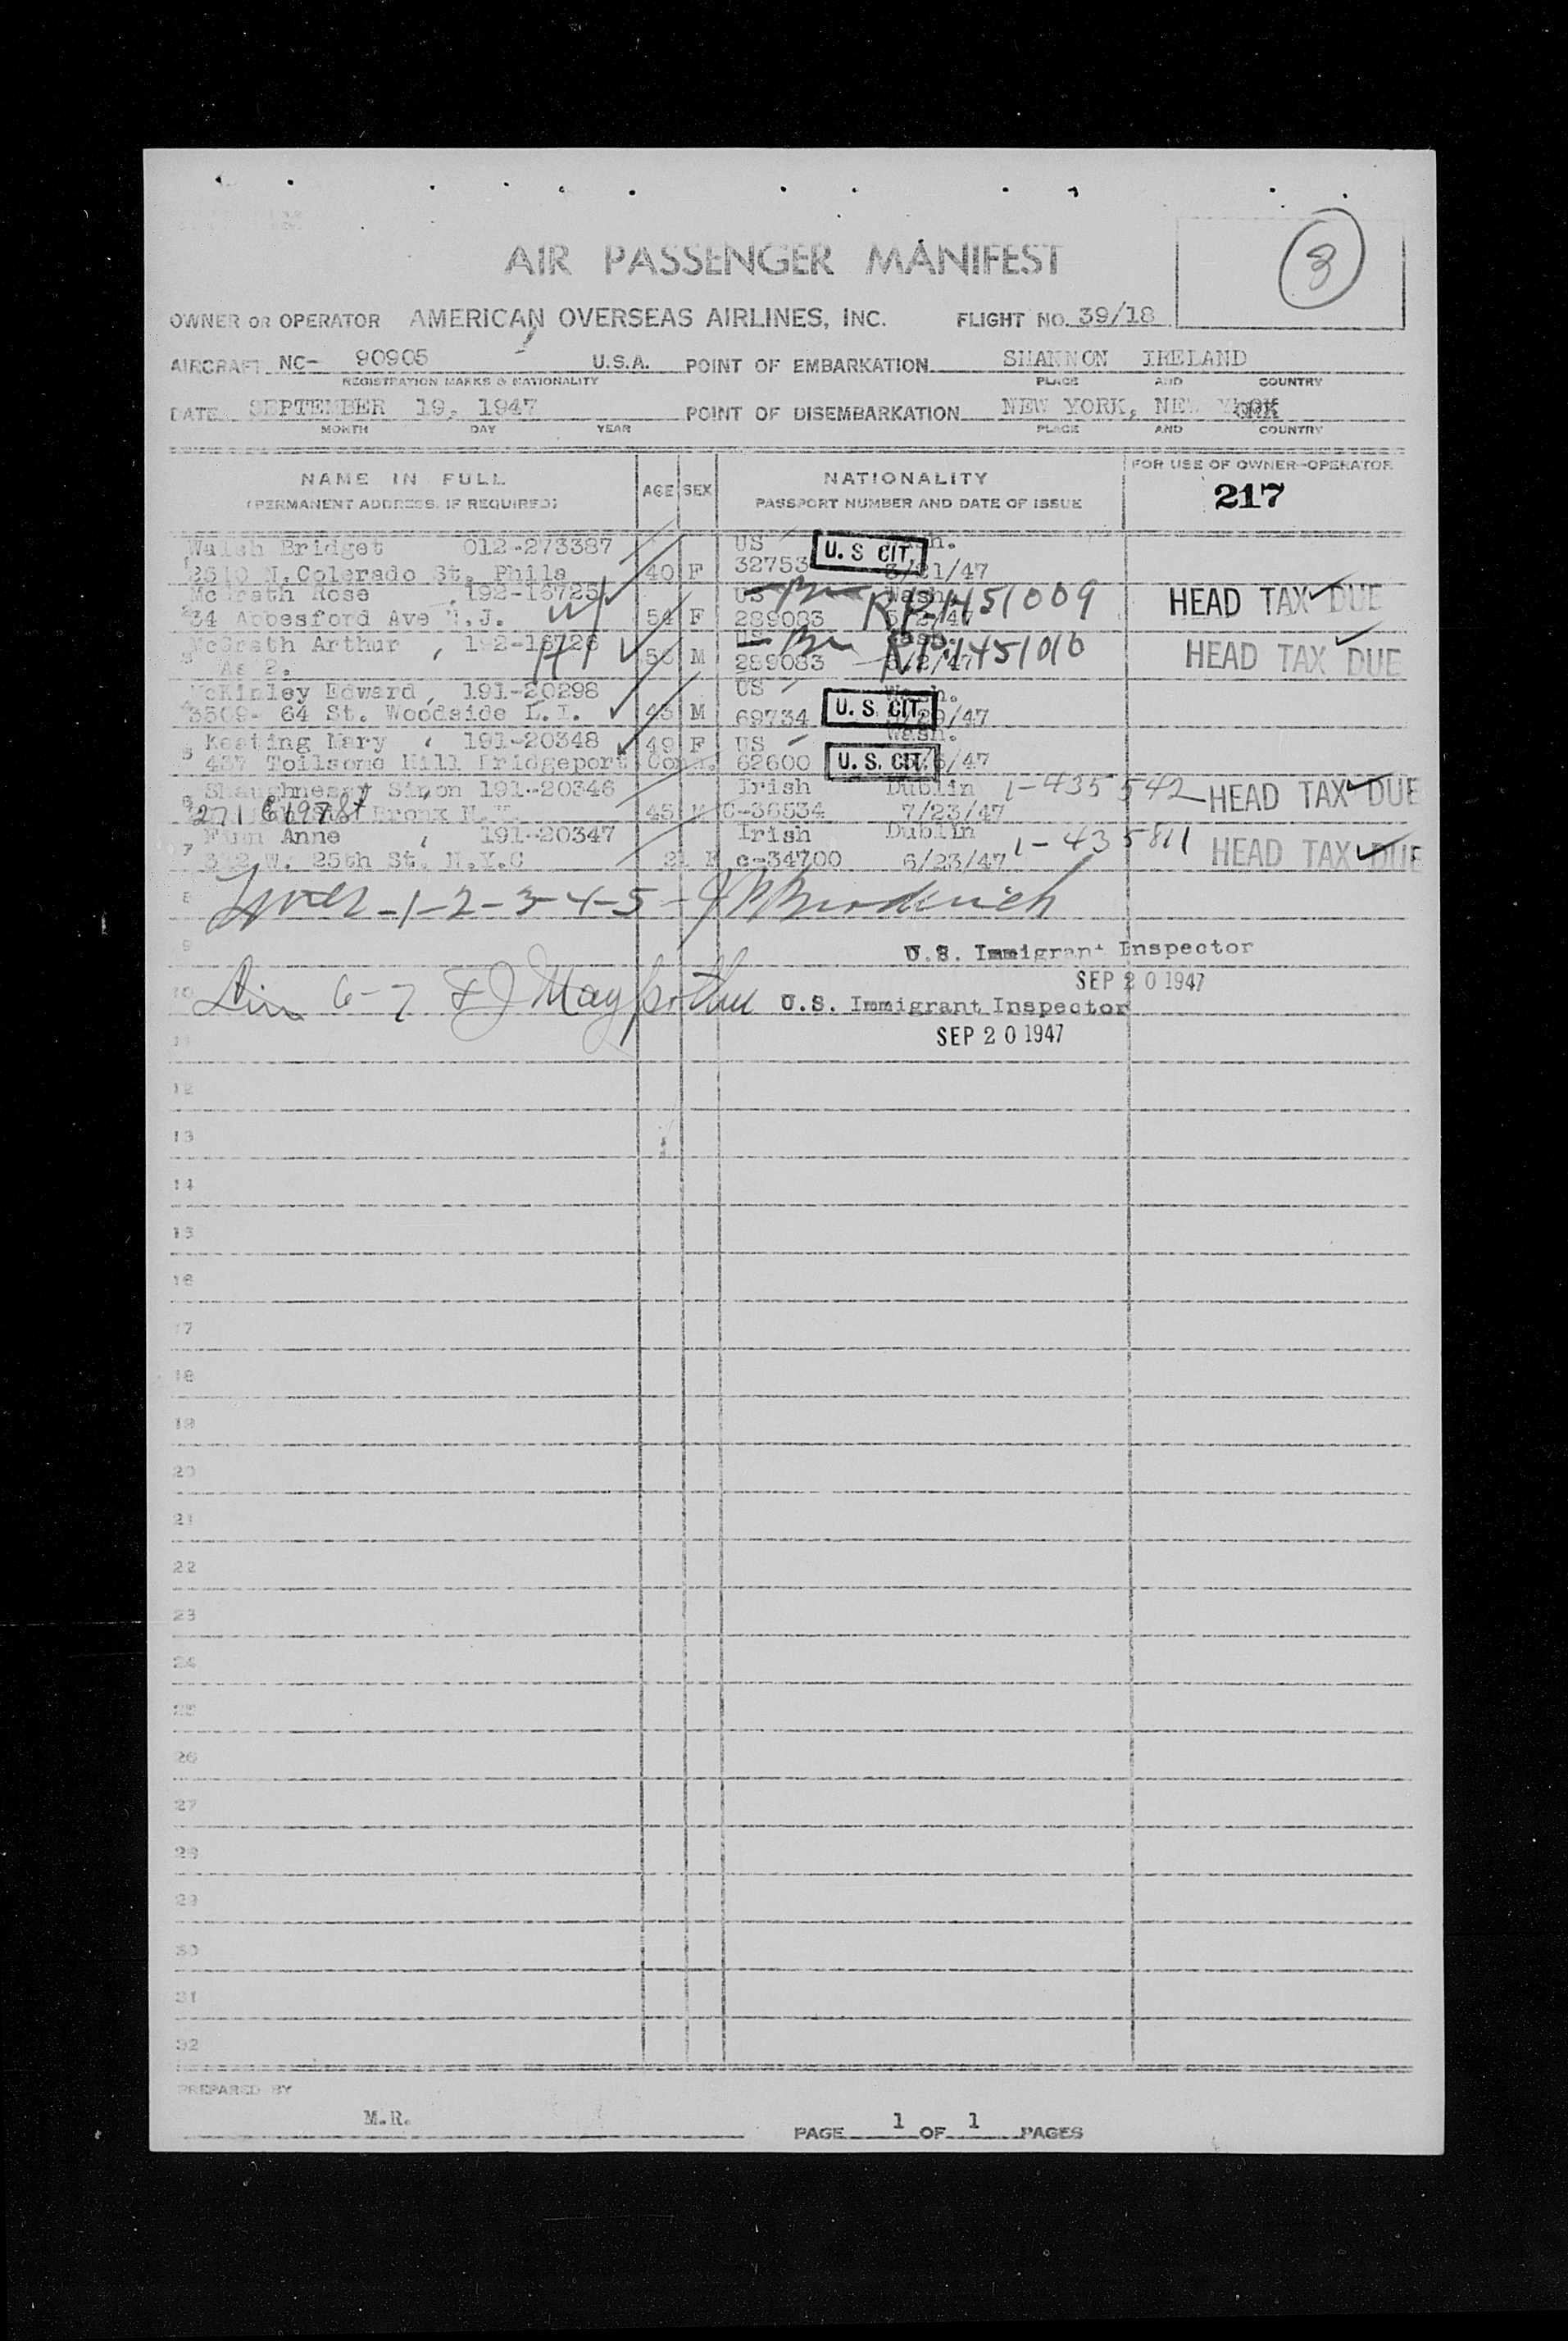 8
AIR PASSENGER MANIFEST
OWNER OR OPERATOR AMERICAN OVERSEAS AIRLINES, INC. FLIGHT NO. 39/18
AIRCRAFT NC- 90905 U.S.A. POINT OF EMBARKATION SHANNON IRELAND
REGISTRATION MARKS & NATIONALITY PLACE AND COUNTRY
DATE SEPTEMBER 19, 1947 POINT OF DISEMBARKATION NEW YORK, NEW YORK
MONTH DAY YEAR PLACE AND COUNTRY
NAME IN FULL AGE SEX NATIONALITY FOR USE OF OWNER-OPERATOR
(PERMANENT ADDRESS, IF REQUIRED) PASSPORT NUMBER AND DATE OF ISSUE 217
1 Walsh Bridget 012-273387 US U. S CIT.
N. Colerado St. Phila 40 F 32753 /47
2 McGrath Rose , 192-16725 54 F US Wash. RP 1451009 HEAD TAX DUE
34 Ave N.J. 289083 5/2/47
3 McGrath Arthur , 192-16726 M US Wash. RP 1451010 HEAD TAX DUE
As 2. 289083 5/2/47
4 McKinley Edward , 191-20298 US Wash.
3509- 64 St. Woodside L.I. 45 M 69734 U. S. CIT. /29/47
5 Keating Mary , 191-20348 49 F US Wash.
437 Toilsome Hill Bridgeport Conn. 62600 U. S. CIT. /47
6 Shaughnessy Simon 191-20346 Irish Dublin 1-435542 HEAD TAX DUE
271 E 197 St Bronx N.Y. 45 M C-36534 7/23/47
7 Anne , 191-20347 Irish Dublin 1-435811 HEAD TAX DUE
W. 25th St. N.Y.C 21 F c-34700 6/23/47
8 Lines -1-2-3-4-5 - J P Broderick
9 U.S. Immigrant Inspector
SEP 20 1947
10 Lin 6-7 U.S. Immigrant Inspector
SEP 20 1947
11
12
13
14
15
16
17
18
19
20
21
22
23
24
25
26
27
28
29
30
31
32
PREPARED BY
M.R.
PAGE 1 OF 1 PAGES